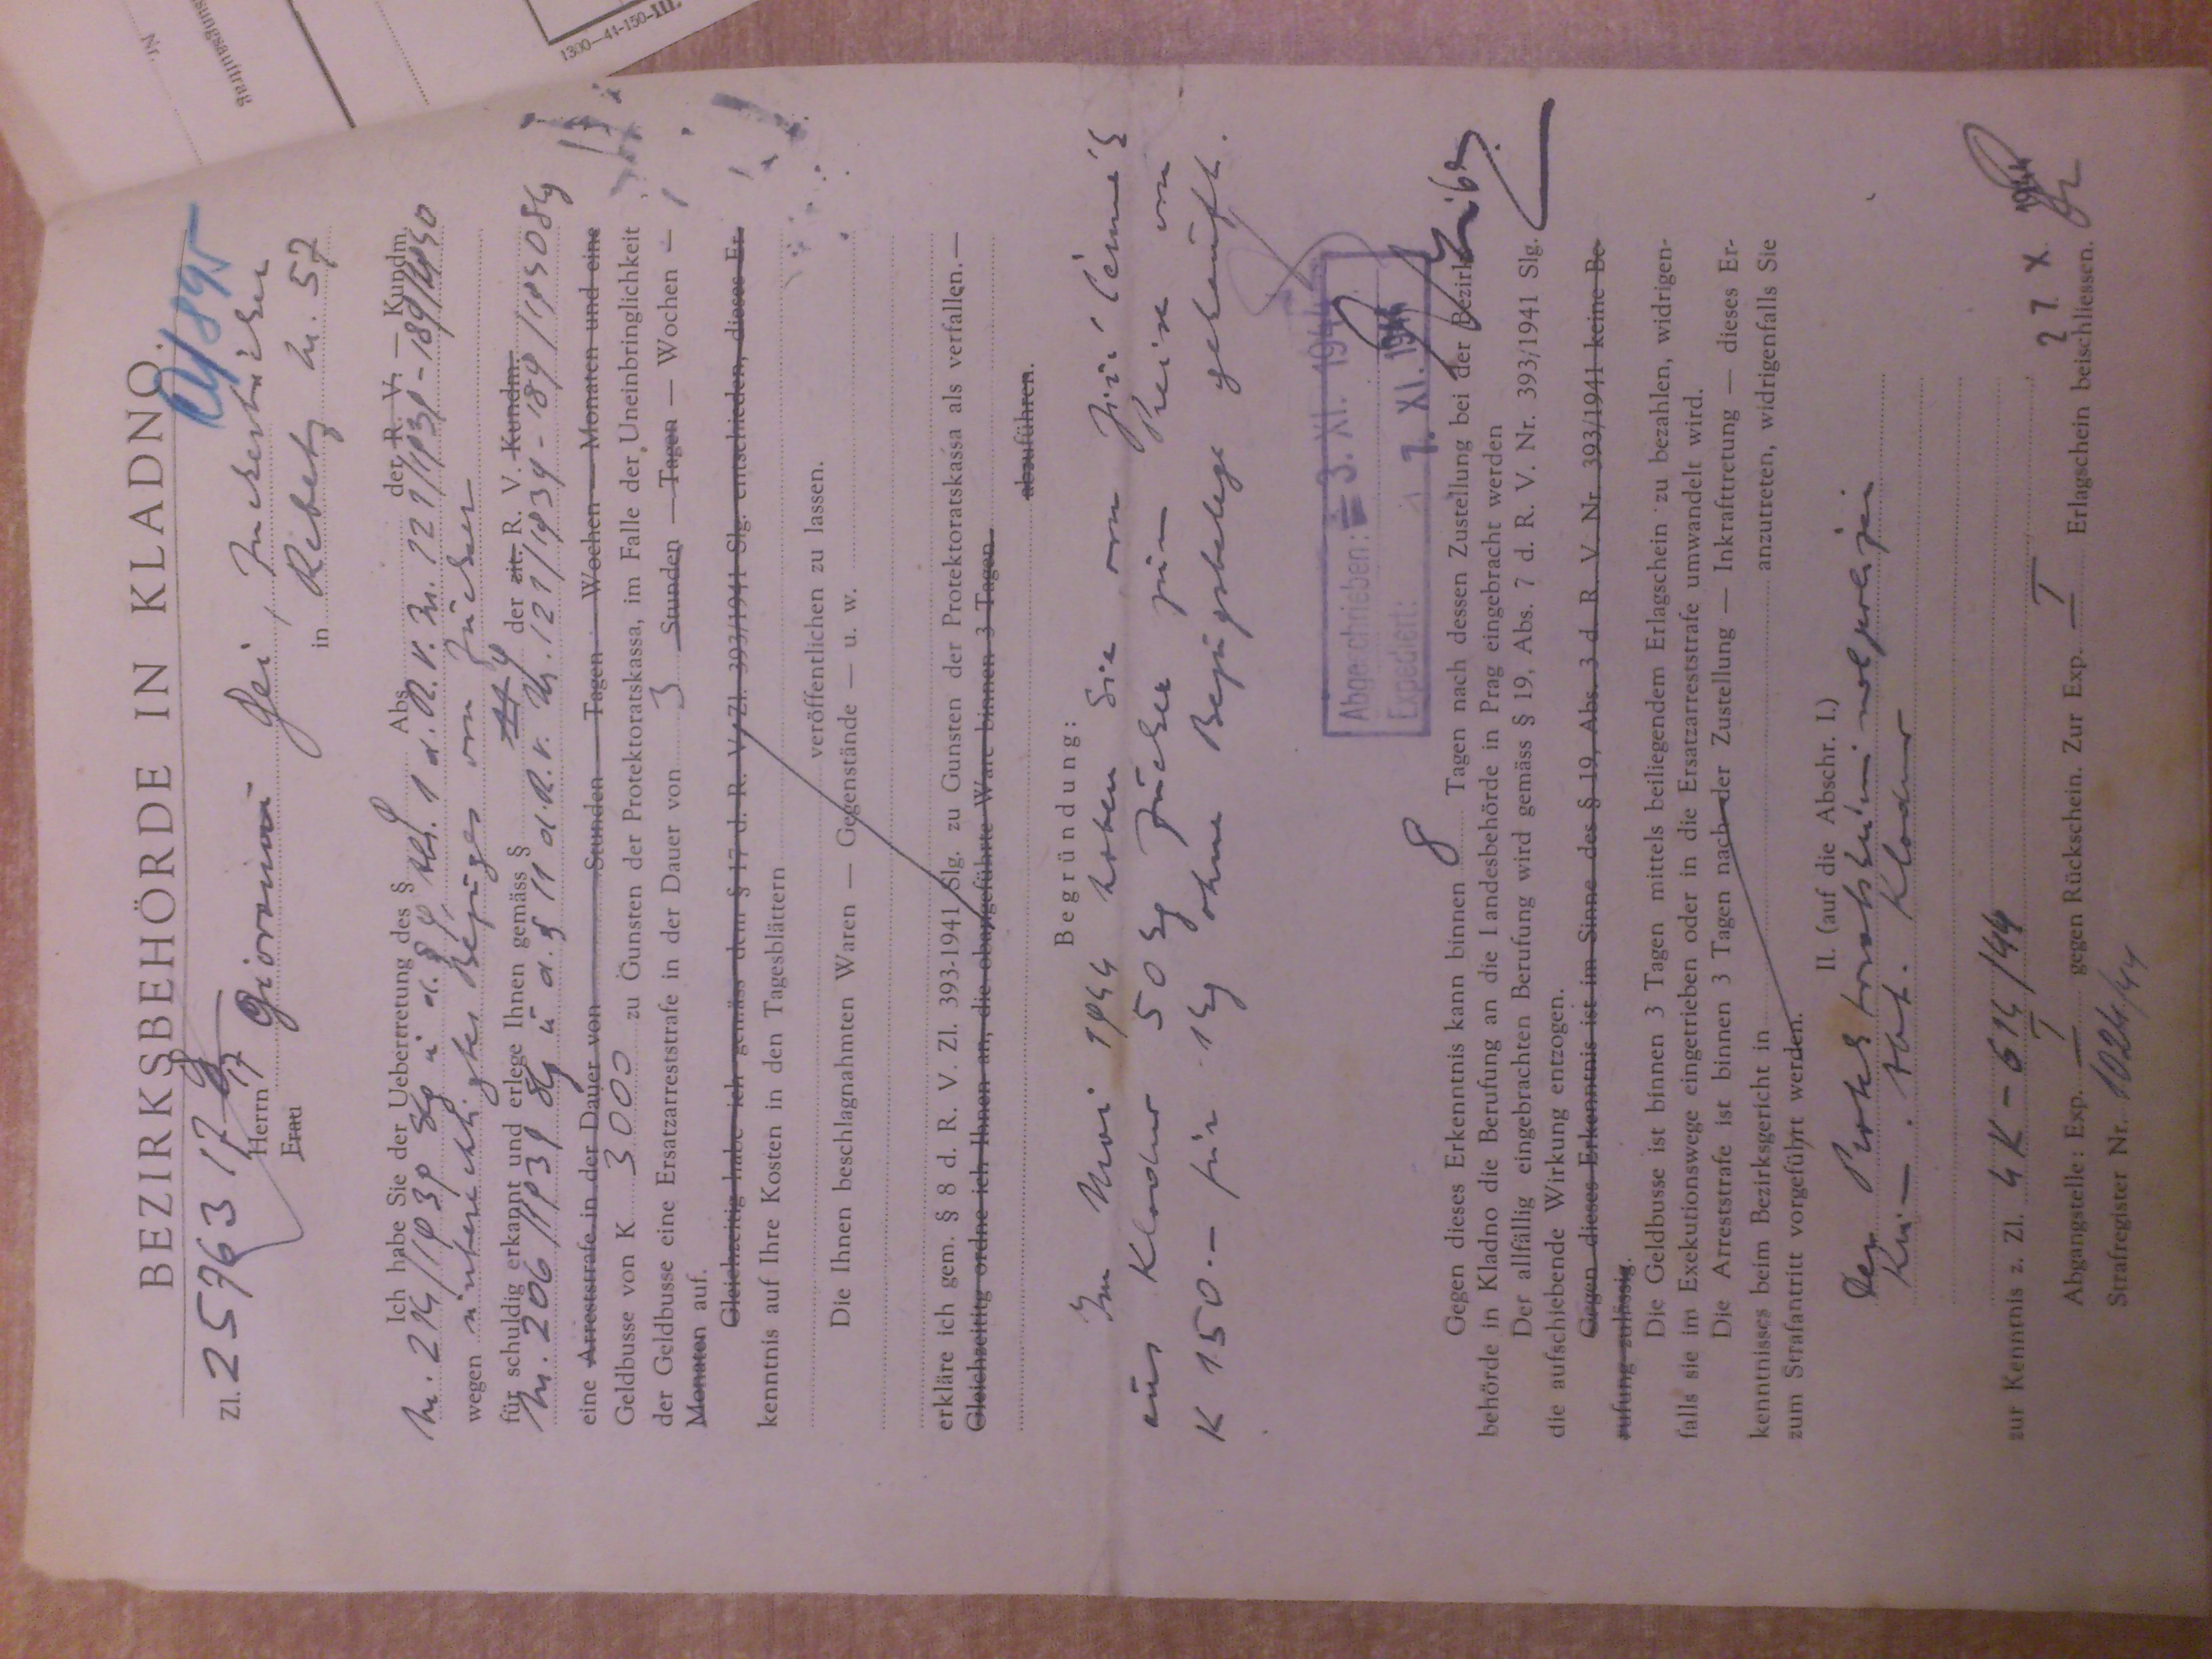 BEZIRKSBEHÖRDE IN KLADNO.
Zl. 25763 17
Herrn Giovanni Gei, Zuckerbäcker
Frau
in Rebetz Nr. 57
Ich habe Sie der Uebertretung des § 9 Abs. der R. V. — Kundm.
Nr. 214/1939 Slg u. d. § 9, Abs. 1 d. R. V. Nr. 121/1939-189/1940
wegen unberechtigten Bezuges von Zucker
für schuldig erkannt und erlege Ihnen gemäss § 11 4 der zit. R. V. Kundm.
Nr. 206/1939 Slg u. d. § 11 d. R. V. Nr. 121/1939-189/1940 Slg
eine Arreststrafe in der Dauer von Stunden — Tagen — Wochen — Monaten und eine
Geldbusse von K 3000 zu Gunsten der Protektoratskassa, im Falle der Uneinbringlichkeit
der Geldbusse eine Ersatzarreststrafe in der Dauer von 3 Stunden — Tagen — Wochen —
Monaten auf.
Gleichzeitig habe ich gemäss dem § 17 d. R. V. Zl. 393/1941 Slg. entschieden, dieses Er-
kenntnis auf Ihre Kosten in den Tagesblättern
veröffentlichen zu lassen.
Die Ihnen beschlagnahmten Waren — Gegenstände — u. w.
erkläre ich gem. § 8 d. R. V. Zl. 393-1941 Slg. zu Gunsten der Protektoratskassa als verfallen.—
Gleichzeititg ordne ich Ihnen an, die obangeführte Ware binnen 3 Tagen
abzuführen.
Begründung:
Im Mai 1944 haben Sie von Jiří Čermák
aus Kladno 50 kg Zucker zum Preise von
K 150.— für 1 kg ohne Bezugsbelege gekauft.
Abgeschrieben: 3. XI. 1944
Expediert: 7. XI. 1944
Gegen dieses Erkenntnis kann binnen 8 Tagen nach dessen Zustellung bei der Bezirks-
behörde in Kladno die Berufung an die Landesbehörde in Prag eingebracht werden
Der allfällig eingebrachten Berufung wird gemäss § 19, Abs. 7 d. R. V. Nr. 393/1941 Slg.
die aufschiebende Wirkung entzogen.
Gegen dieses Erkenntnis ist im Sinne des § 19, Abs. 3 d. R. V. Nr. 393/1941 keine Be-
rufung zulässig.
Die Geldbusse ist binnen 3 Tagen mittels beiliegendem Erlagschein zu bezahlen, widrigen-
falls sie im Exekutionswege eingetrieben oder in die Ersatzarreststrafe umwandelt wird.
Die Arreststrafe ist binnen 3 Tagen nach der Zustellung — Inkrafttretung — dieses Er-
kenntnisses beim Bezirksgericht in anzutreten, widrigenfalls Sie
zum Strafantritt vorgeführt werden.
II. (auf die Abschr. I.)
Der Protektoratskriminalpolizei
Krim. Abt. Kladno
zur Kenntnis z. Zl. 4 K - 614/44
27. X. 1944
Abgangstelle: Exp. I gegen Rückschein. Zur Exp. I Erlagschein beischliessen.
Strafregister Nr. 1024/44
Nr.
1300—41-150-III.